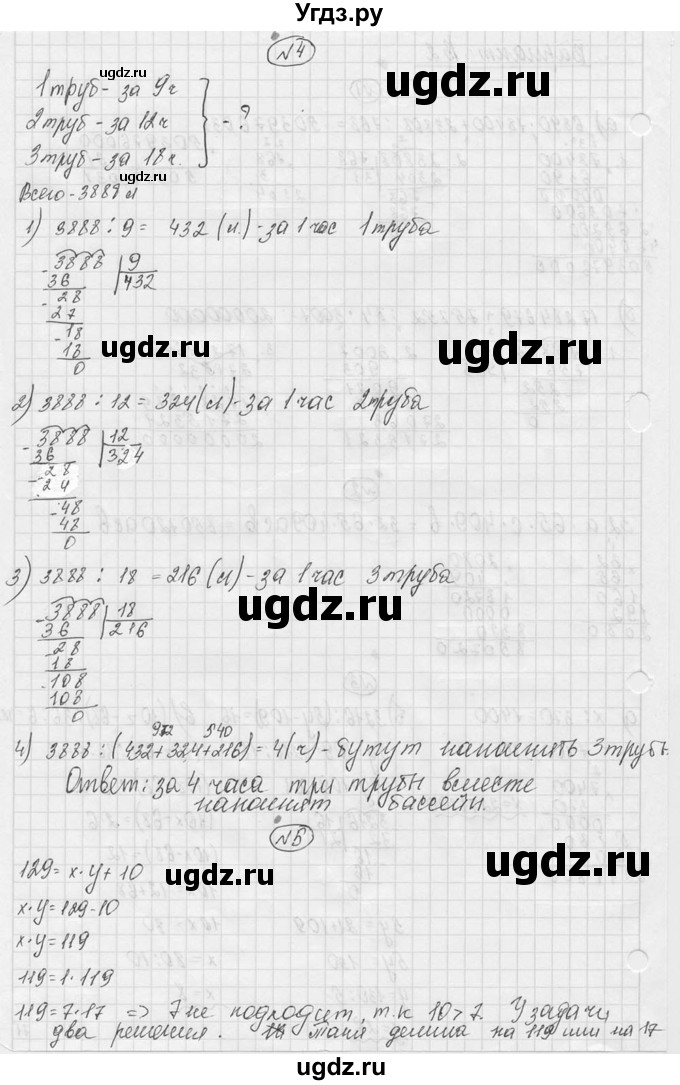 Угдз.ру
№4
1 труб - за 9 ч
2 труб - за 12 ч } - ?
3 труб - за 18 ч.
Всего - 3888 л
1) 3888 : 9 = 432 (л.) - за 1 час 1 труба
- 3888 | 9
36 | 432
- 28
27
- 18
18
0
2) 3888 : 12 = 324 (л) - за 1 час 2 труба
- 3888 | 12
36 | 324
- 28
- 24
- 48
48
0
3) 3888 : 18 = 216 (л) - за 1 час 3 труба
- 3888 | 18
36 | 216
- 28
18
- 108
108
0
972 540
4) 3888 : (432 + 324 + 216) = 4 (ч) - бутут наполнять 3 трубы
Ответ: за 4 часа три трубы вместе
наполнят бассейн.
№5
129 = x · y + 10
x · y = 129 - 10
x · y = 119
119 = 1 · 119
119 = 7 · 17 => 7 не подходит, т.к 10 > 7. У задачи
два решения. Таня делила на 119 или на 17
ugdz.ru
ugdz.ru
ugdz.ru
ugdz.ru
ugdz.ru
ugdz.ru
ugdz.ru
ugdz.ru
ugdz.ru
ugdz.ru
ugdz.ru